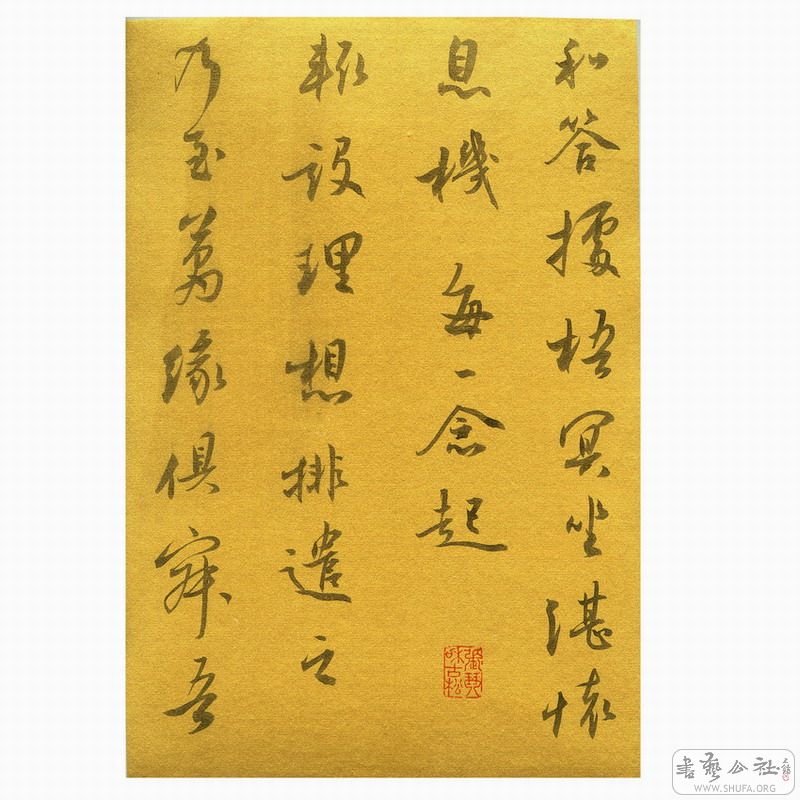 和答據梧冥坐湛懷
息機每一念起
輒設理想排遣之
乃至萬緣俱寂吾
書藝公社
WWW.SHUFA.ORG